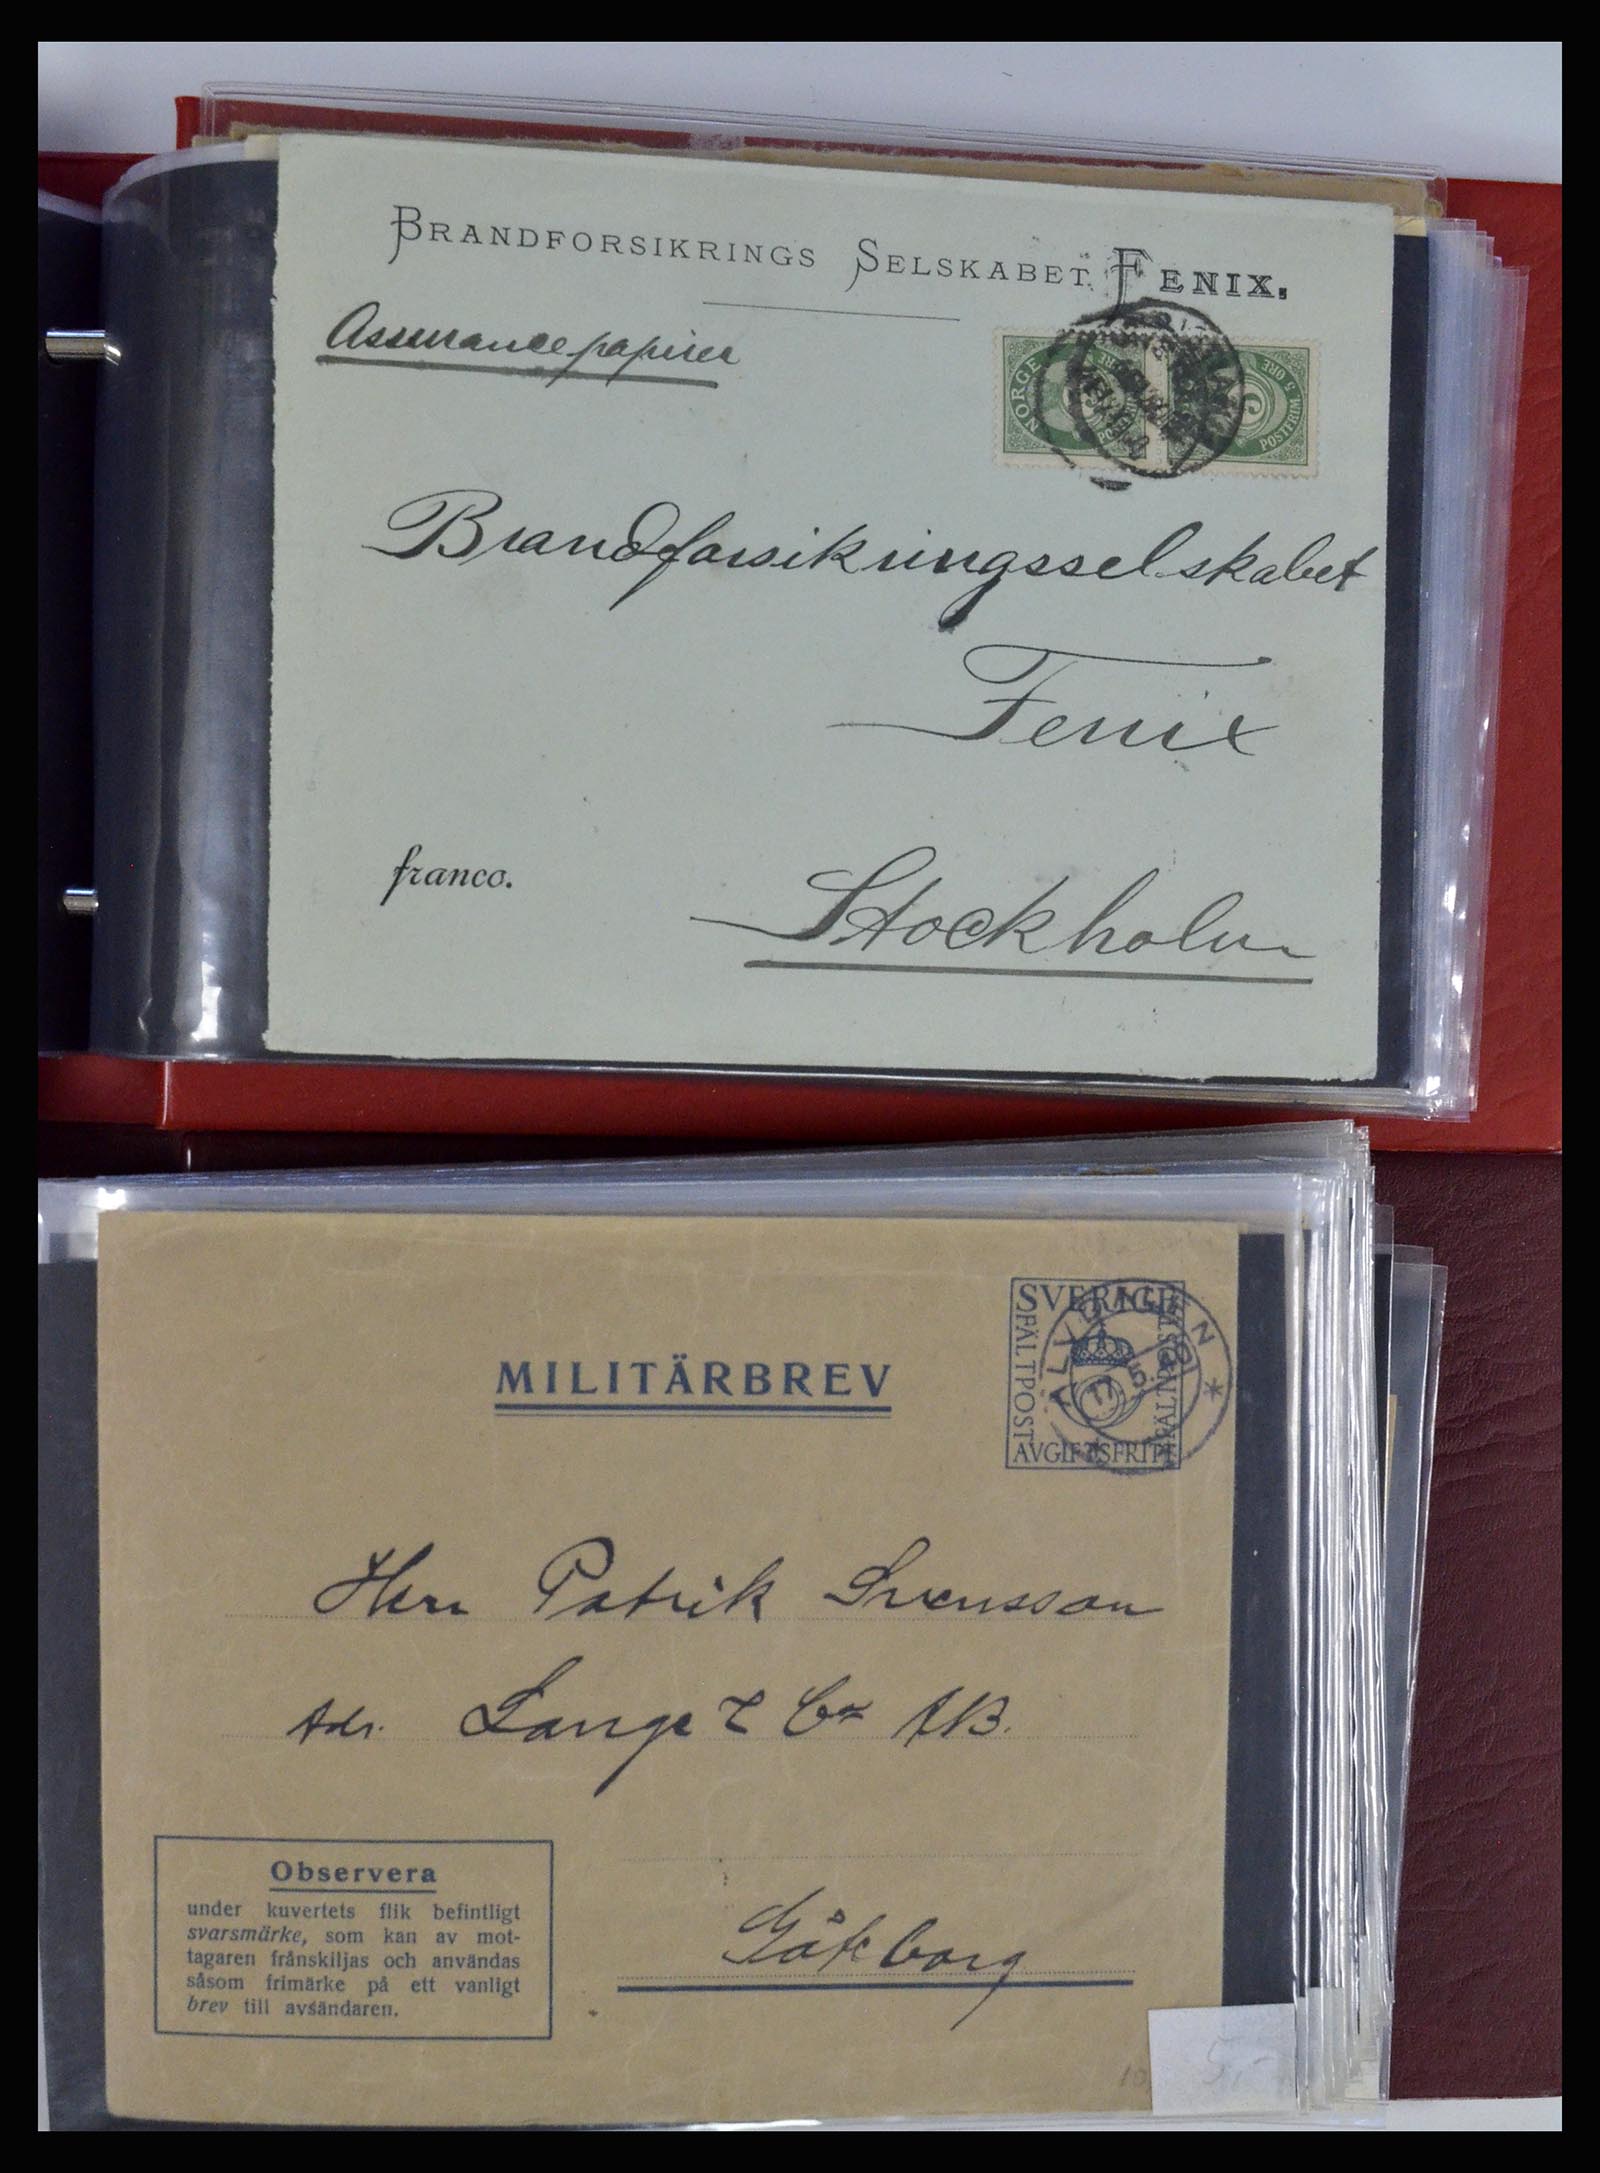 BRANDFORSIKRINGS SELSKABET FENIX.
Assurancepapirer
NORGE
POSTFRIM 5 ØRE
Brandforsikringsselskabet
Fenix
franco.
Stockholm
MILITÄRBREV
SVERIGE
FÄLTPOST
AVGIFTSFRITT
ÄLVDALEN
17.5.
Herr Patrik Svensson
Adr. Lange & Co AB.
Observera
under kuvertets flik befintligt
svarsmärke, som kan av mot-
tagaren frånskiljas och användas
såsom frimärke på ett vanligt
brev till avsändaren.
Göteborg
10,
5,-